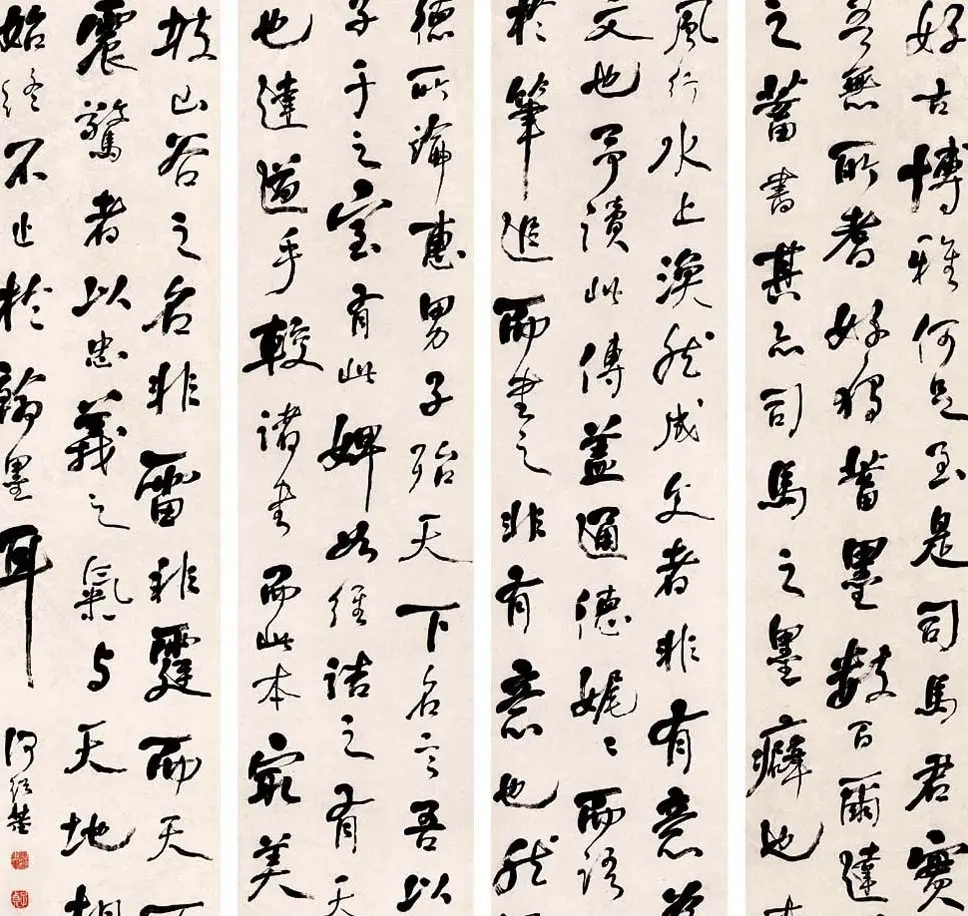 好古博雅何足至是司馬君實
吾無所耆好獨蓄墨數百爾達
之蓄書甚亦司馬之墨癖也
風行水上渙然成文者非有意
文也予讀此傳蓋通德娓〻而語
於筆追而書之非有意也然
德所論惠男子殆天下名言吾以
子于之室有此婢如經詰之有天
也達道手較諸書而此本最美
坡山谷之名非雷非霆而天下
震驚者以忠義之氣與天地相
始終不止於翰墨耳
何紹基